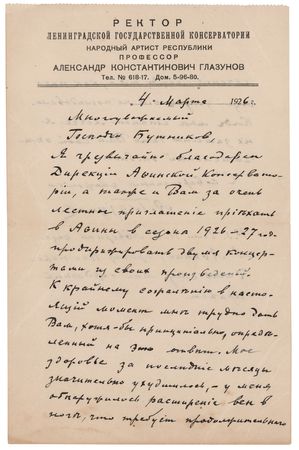 РЕКТОР
ЛЕНИНГРАДСКОЙ ГОСУДАРСТВЕННОЙ КОНСЕРВАТОРИИ
НАРОДНЫЙ АРТИСТ РЕСПУБЛИКИ
ПРОФЕССОР
АЛЕКСАНДР КОНСТАНТИНОВИЧ ГЛАЗУНОВ
Тел. № 618-17. Дом. 5-96-80.
4. Марта 1926 г.
Многоуважаемый
Господин Бутников.
Я чрезвычайно благодарен
Дирекции Афинской Консервато-
рiи, а также и Вам за очень
лестное приглашение прiѣхать
в Афины в сезон 1926–27 год
продирижировать двумя концер-
тами из своих произведенiй.
К крайнему сожалѣнiю в насто-
ящiй момент мнѣ трудно дать
Вам, хотя-бы принципiально, опредѣ-
ленный на это отвѣт. Мое
здоровье за последнiе мѣсяцы
значительно ухудшилось, – у меня
обнаружилось расширенiе вен в
ногѣ, что требует продолжительнаго